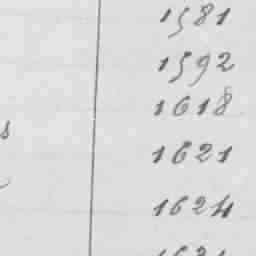 1581
1592
1618
s 1621
1624